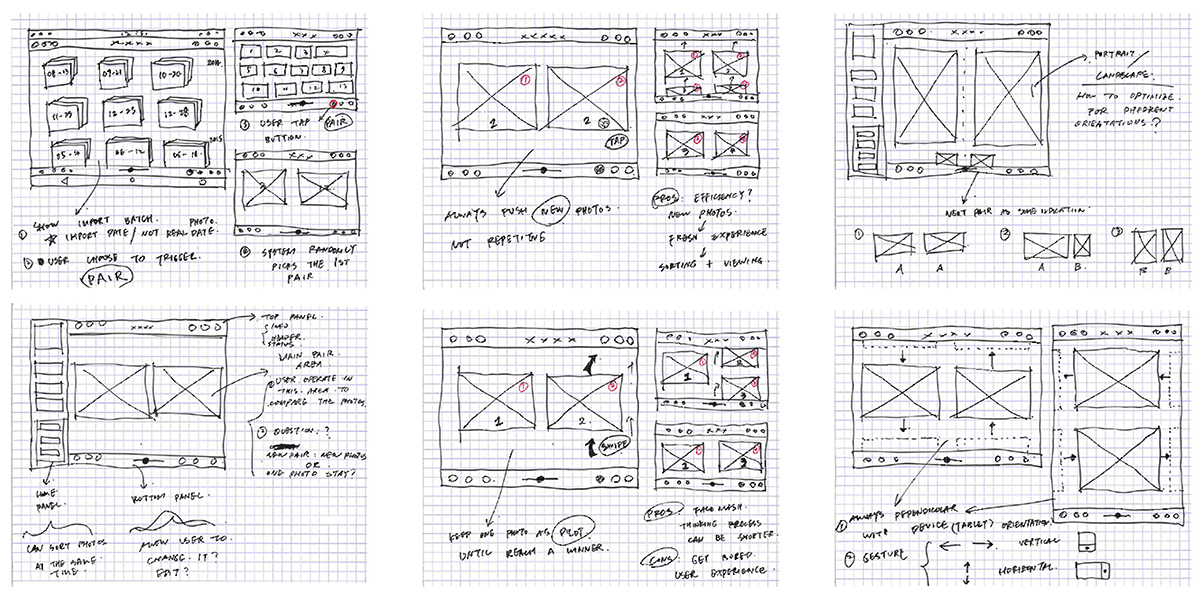 x x x x
08-13
09-21
10-20
2014
11-23
12-25
12-28
2015
05-30
06-12
06-18
① SHOW IMPORT BATCH. PHOTO.
IMPORT DATE / NOT REAL DATE.
② USER CHOOSE TO TRIGGER.
PAIR
x x x x
1 2 3 4
5 6 7 8 9
10 11 12 13
③ USER TAP PAIR
BUTTON.
x x x
④ SYSTEM RANDOMLY
PICKS THE 1ST
PAIR
x x x x x
1
2
1
2
TAP
ALWAYS PUSH NEW PHOTOS.
NOT REPETITIVE
x x x
1
2
3
x x x
3
4
PROS: EFFICIENCY?
NEW PHOTOS.
FRESH EXPERIENCE
SORTING + VIEWING.
x x x x
PORTRAIT
LANDSCAPE.
HOW TO OPTIMIZE
FOR DIFFERENT
ORIENTATIONS?
NEXT PAIR AS SOME INDICATION.
① A A
② A B.
③ B B
x x x x
TOP PANEL.
INFO
HEADER
STATUS
MAIN PAIR
AREA
① USER OPERATE IN
THIS AREA TO
COMPARE THE PHOTOS.
② QUESTION:?
NEW PAIR: NEW PHOTOS
OR
ONE PHOTO STAY?
HOME
PANEL.
BOTTOM PANEL.
CAN SORT PHOTOS
AT THE SAME
TIME.
ALLOW USER TO
CHANGE IT?
EDIT?
x x x x
1
2.
SWIPE
KEEP ONE PHOTO AS PILOT
UNTIL REACH A WINNER.
x x x
1
2
3
x x x
1
3
PROS: FACE MASH.
THINKING PROCESS
CAN BE SHORTER.
CONS: GET BORED.
USER EXPERIENCE.
x x x x
x x x
① ALWAYS PEPENDICULAR
WITH DEVICE (TABLET) ORIENTATION.
② GESTURE
VERTICAL
HORIZONTAL.